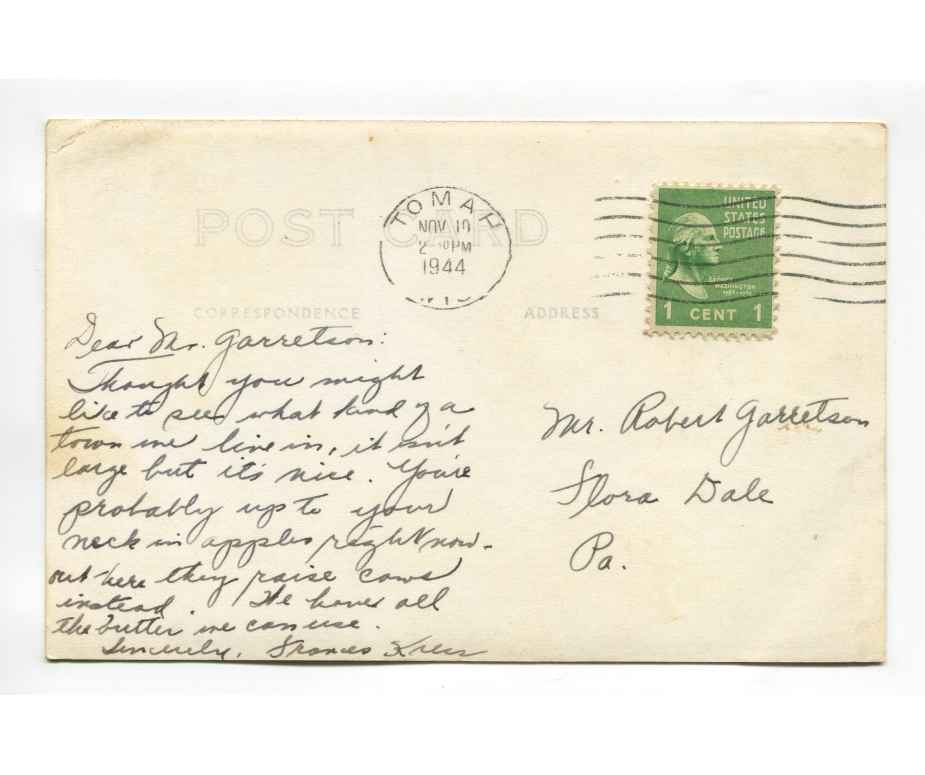 POST CARD
TOMAH
NOV 10
2 PM
1944
WIS
UNITED
STATES
POSTAGE
GEORGE
WASHINGTON
1 CENT 1
CORRESPONDENCE
ADDRESS
Dear Mr. Garretson:
Thought you might
like to see what kind of a
town we live in, it isn't
large but it's nice. You're
probably up to your
neck in apples right now -
out here they raise cows
instead. We have all
the butter we can use.
Sincerely, Frances
Mr. Robert Garretson
Flora Dale
Pa.